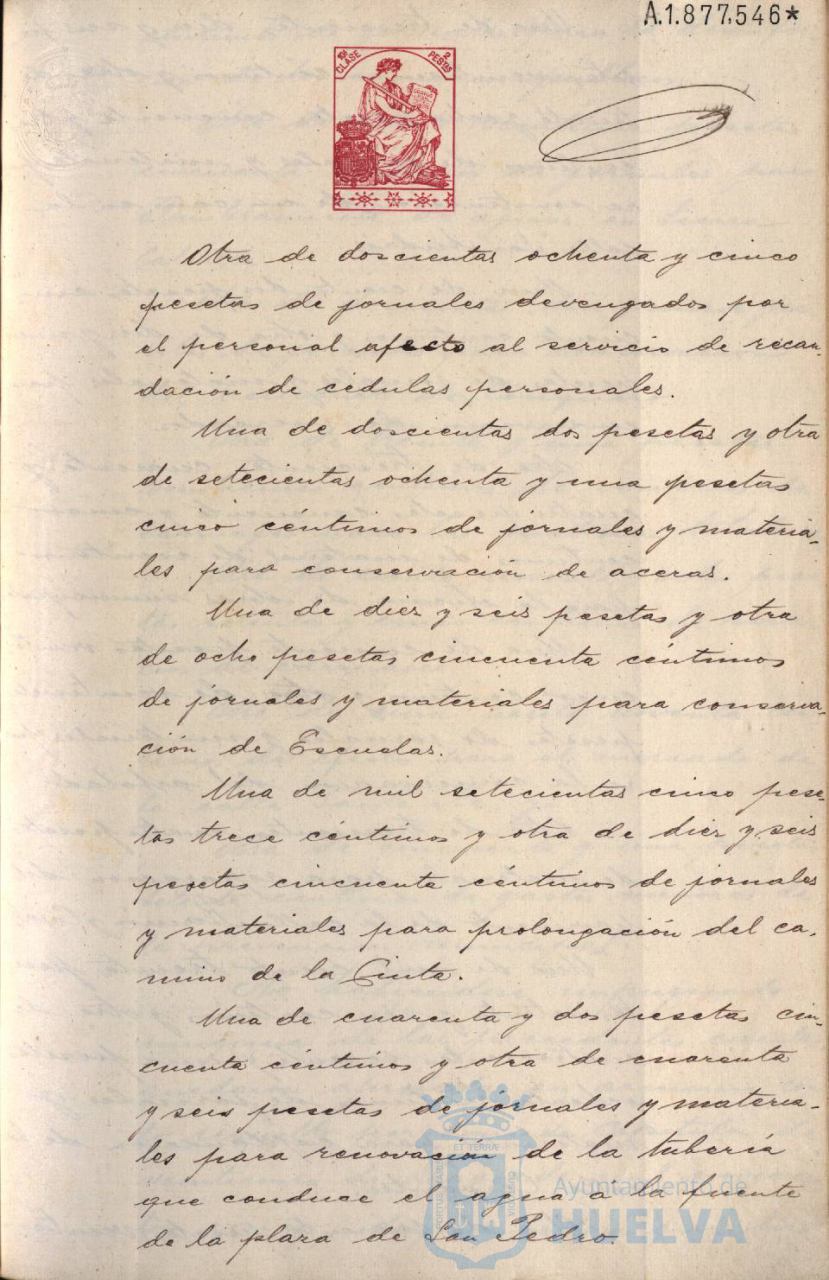 A.1.877,546*
10ª CLASE
2 PESETAS
Otra de doscientas ochenta y cinco
pesetas de jornales devengados por
el personal afecto al servicio de recau-
dación de cédulas personales.
Una de doscientas dos pesetas y otra
de setecientas ochenta y una pesetas
cinco céntimos de jornales y materia-
les para conservación de aceras.
Una de diez y seis pesetas y otra
de ocho pesetas cincuenta céntimos
de jornales y materiales para conserva-
ción de Escuelas.
Una de mil setecientas cinco pese-
tas trece céntimos y otra de diez y seis
pesetas cincuenta céntimos de jornales
y materiales para prolongación del ca-
mino de la Cinta.
Una de cuarenta y dos pesetas cin-
cuenta céntimos y otra de cuarenta
y seis pesetas de jornales y materia-
les para renovación de la tubería
que conduce el agua a la fuente
de la plaza de San Pedro.
Ayuntamiento de
HUELVA